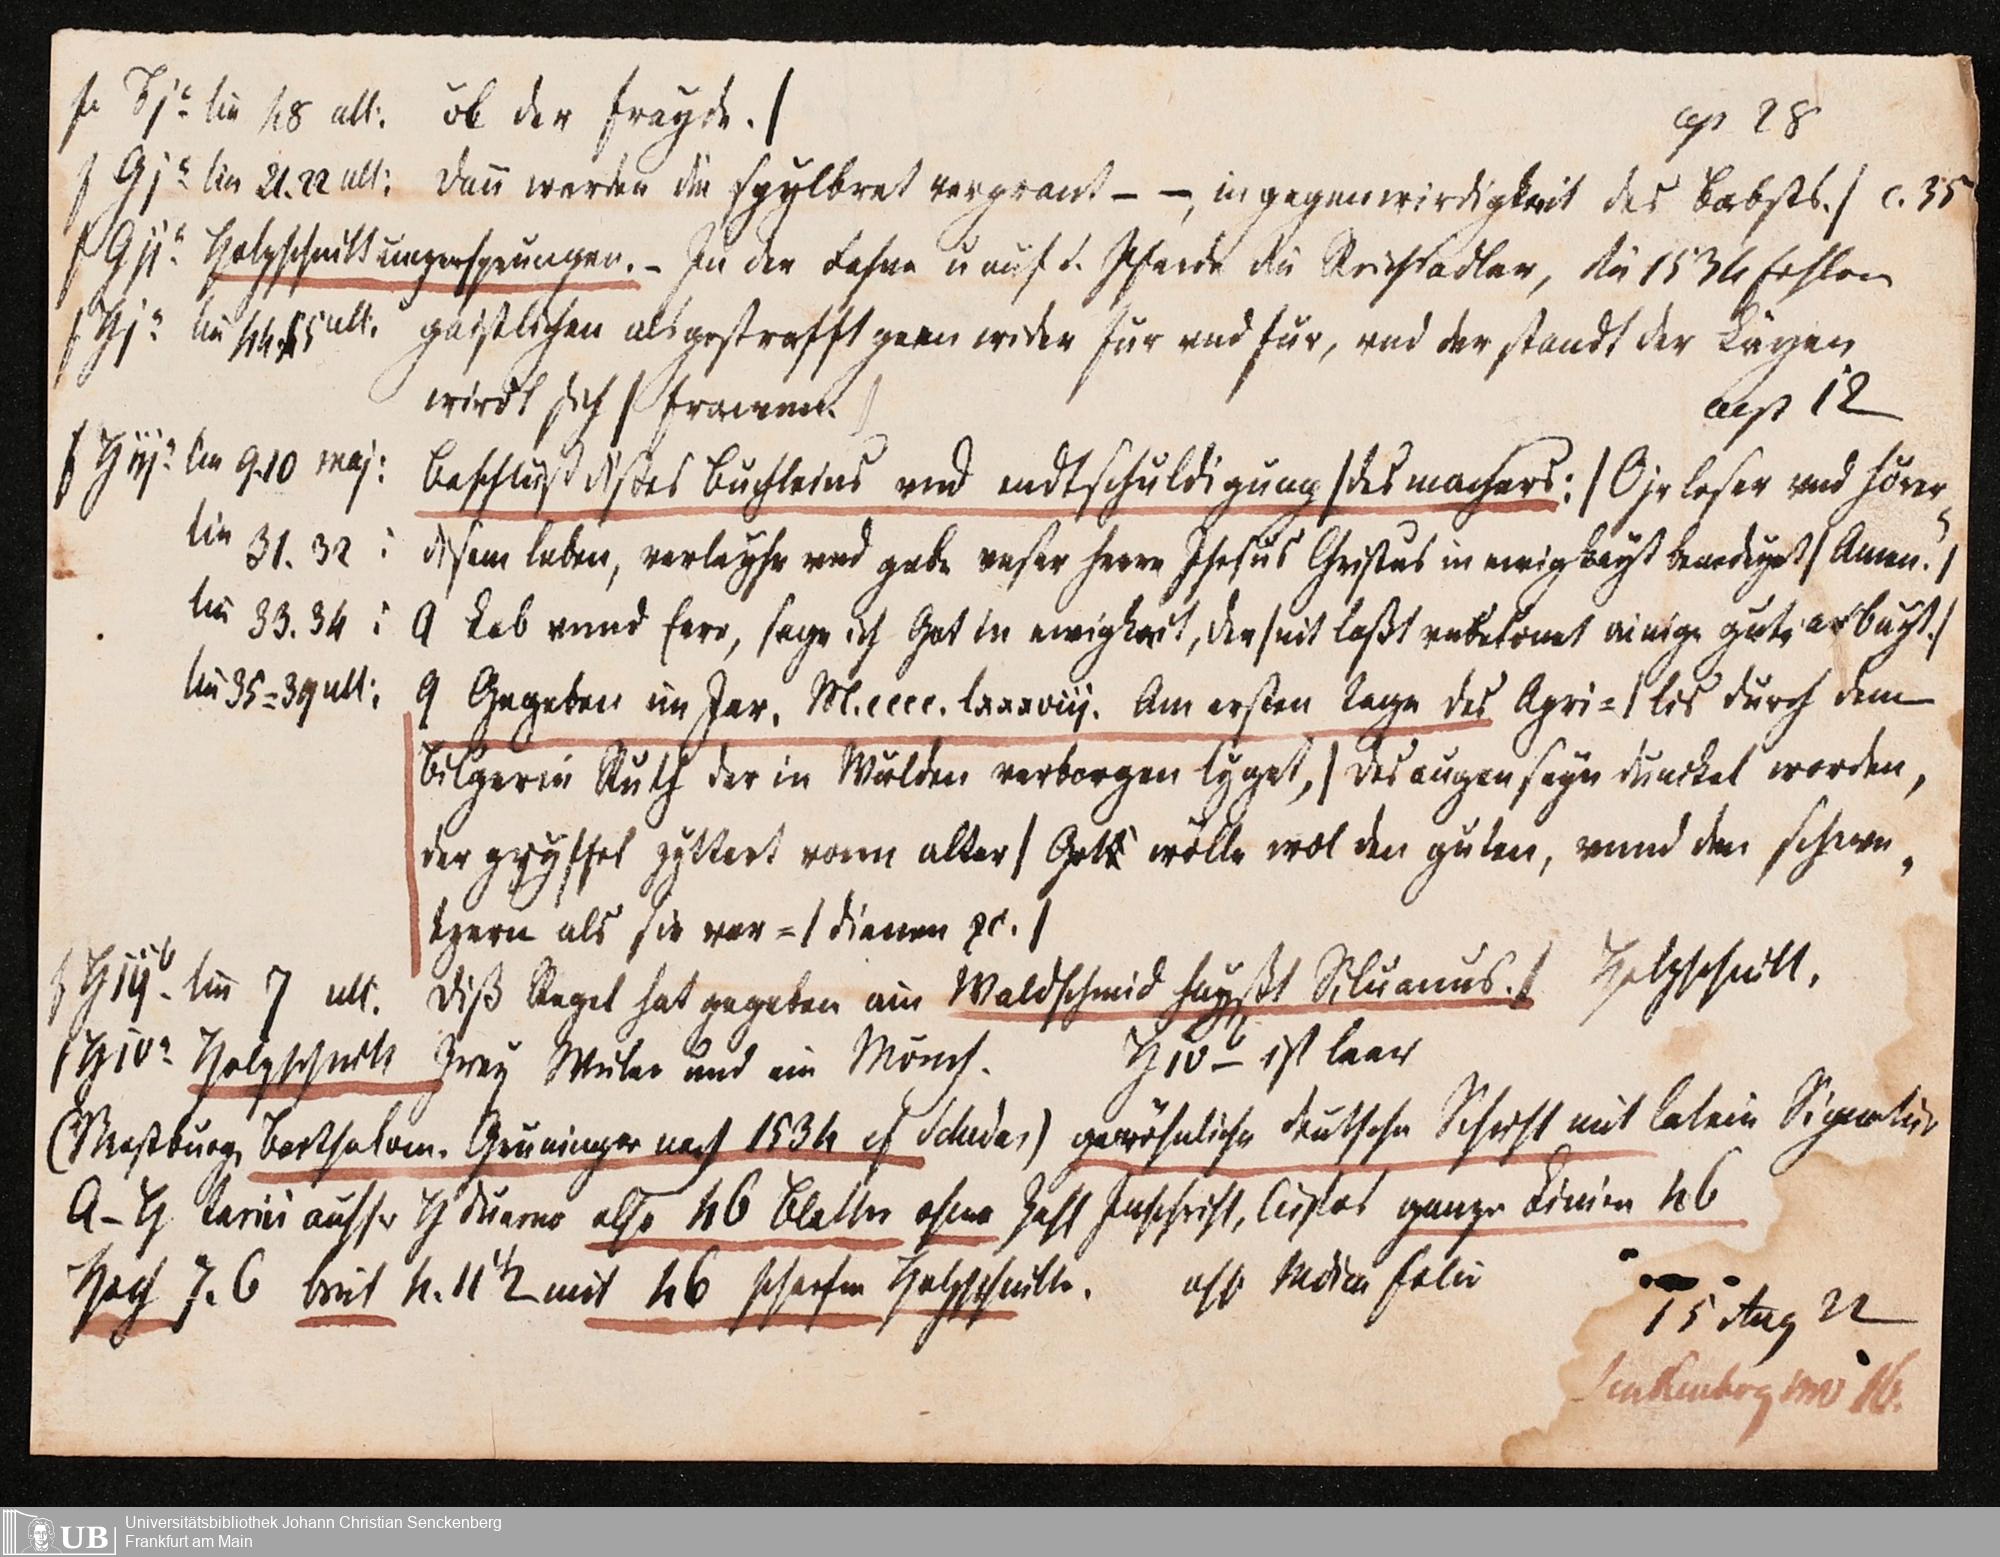 f. Fjᵃ lin 48 ult: ob der frayde. / cap 28
f Gjᵃ lin 21. 22 ult: Dann werden die spylbret verprant – –, in gegenwirdigkeit des Babsts. / c. 35
f Gijᵃ Holzschnitt ungersprungen. – In der Fahne u auf d. Pferde die Reichsadler, die 1534 fehlen
f Hjᵃ lin 44.45 ult. geistlichen als gestrafft geen wider fur und fur, vnd der standt der Läyen
wirdt sich / frawen. / cap 12
f Hiijᵃ lin 9.10 maj: Beschluß dißes Buchleins vnd endtschuldigung / des machers: / O jr leser vnd hörer
lin 31. 32 : disem leben, verleyhe vnd gebe vnser herre Jhesus Christus in ewigkeyt benedeyet / Amen. /
lin 33. 34 : ¶ Lob vnnd Eere, sage ich Got in ewigkeit, der / nit laßt unbelonet einige gute arbayt. /
lin 35–39 ult: ¶ Gegeben im Jar. M.cccc.lxxxviij. Am ersten tage des Apri= / lis durch dem
bilgerin Ruth der in Walden verborgen lyget, / des augen seyn dunckel worden,
der gryffel zyttert vonn alter / Gott wölle wol den guten, vnnd den schwe
tzern als sie ver= / dienen ꝛc. /
f Hiijᵇ lin 7 ult. Diß Regel hat gegeben ain Waldschmid haysßt Siluanus. / Holzschnitt.
f Hivᵃ Holzschnitt Zwey Weiber und ein Mönch. Hivᵇ ist leer
(Straßburg, Bartholom. Grüninger nach 1534 cf Schedas) gewöhnliche deutsche Schrift mit latein Signatur
A–H Terni ausser H Duerno also 46 Blätter ohne Zahl Inschrift, Custos ganze Linien 46
Hoch 7. 6 breit 4. 11½ mit 46 scharfen Holzschnitte. als Median folio
15 Aug 22
Senkenberg no 16.
Universitätsbibliothek Johann Christian Senckenberg
UB
Frankfurt am Main